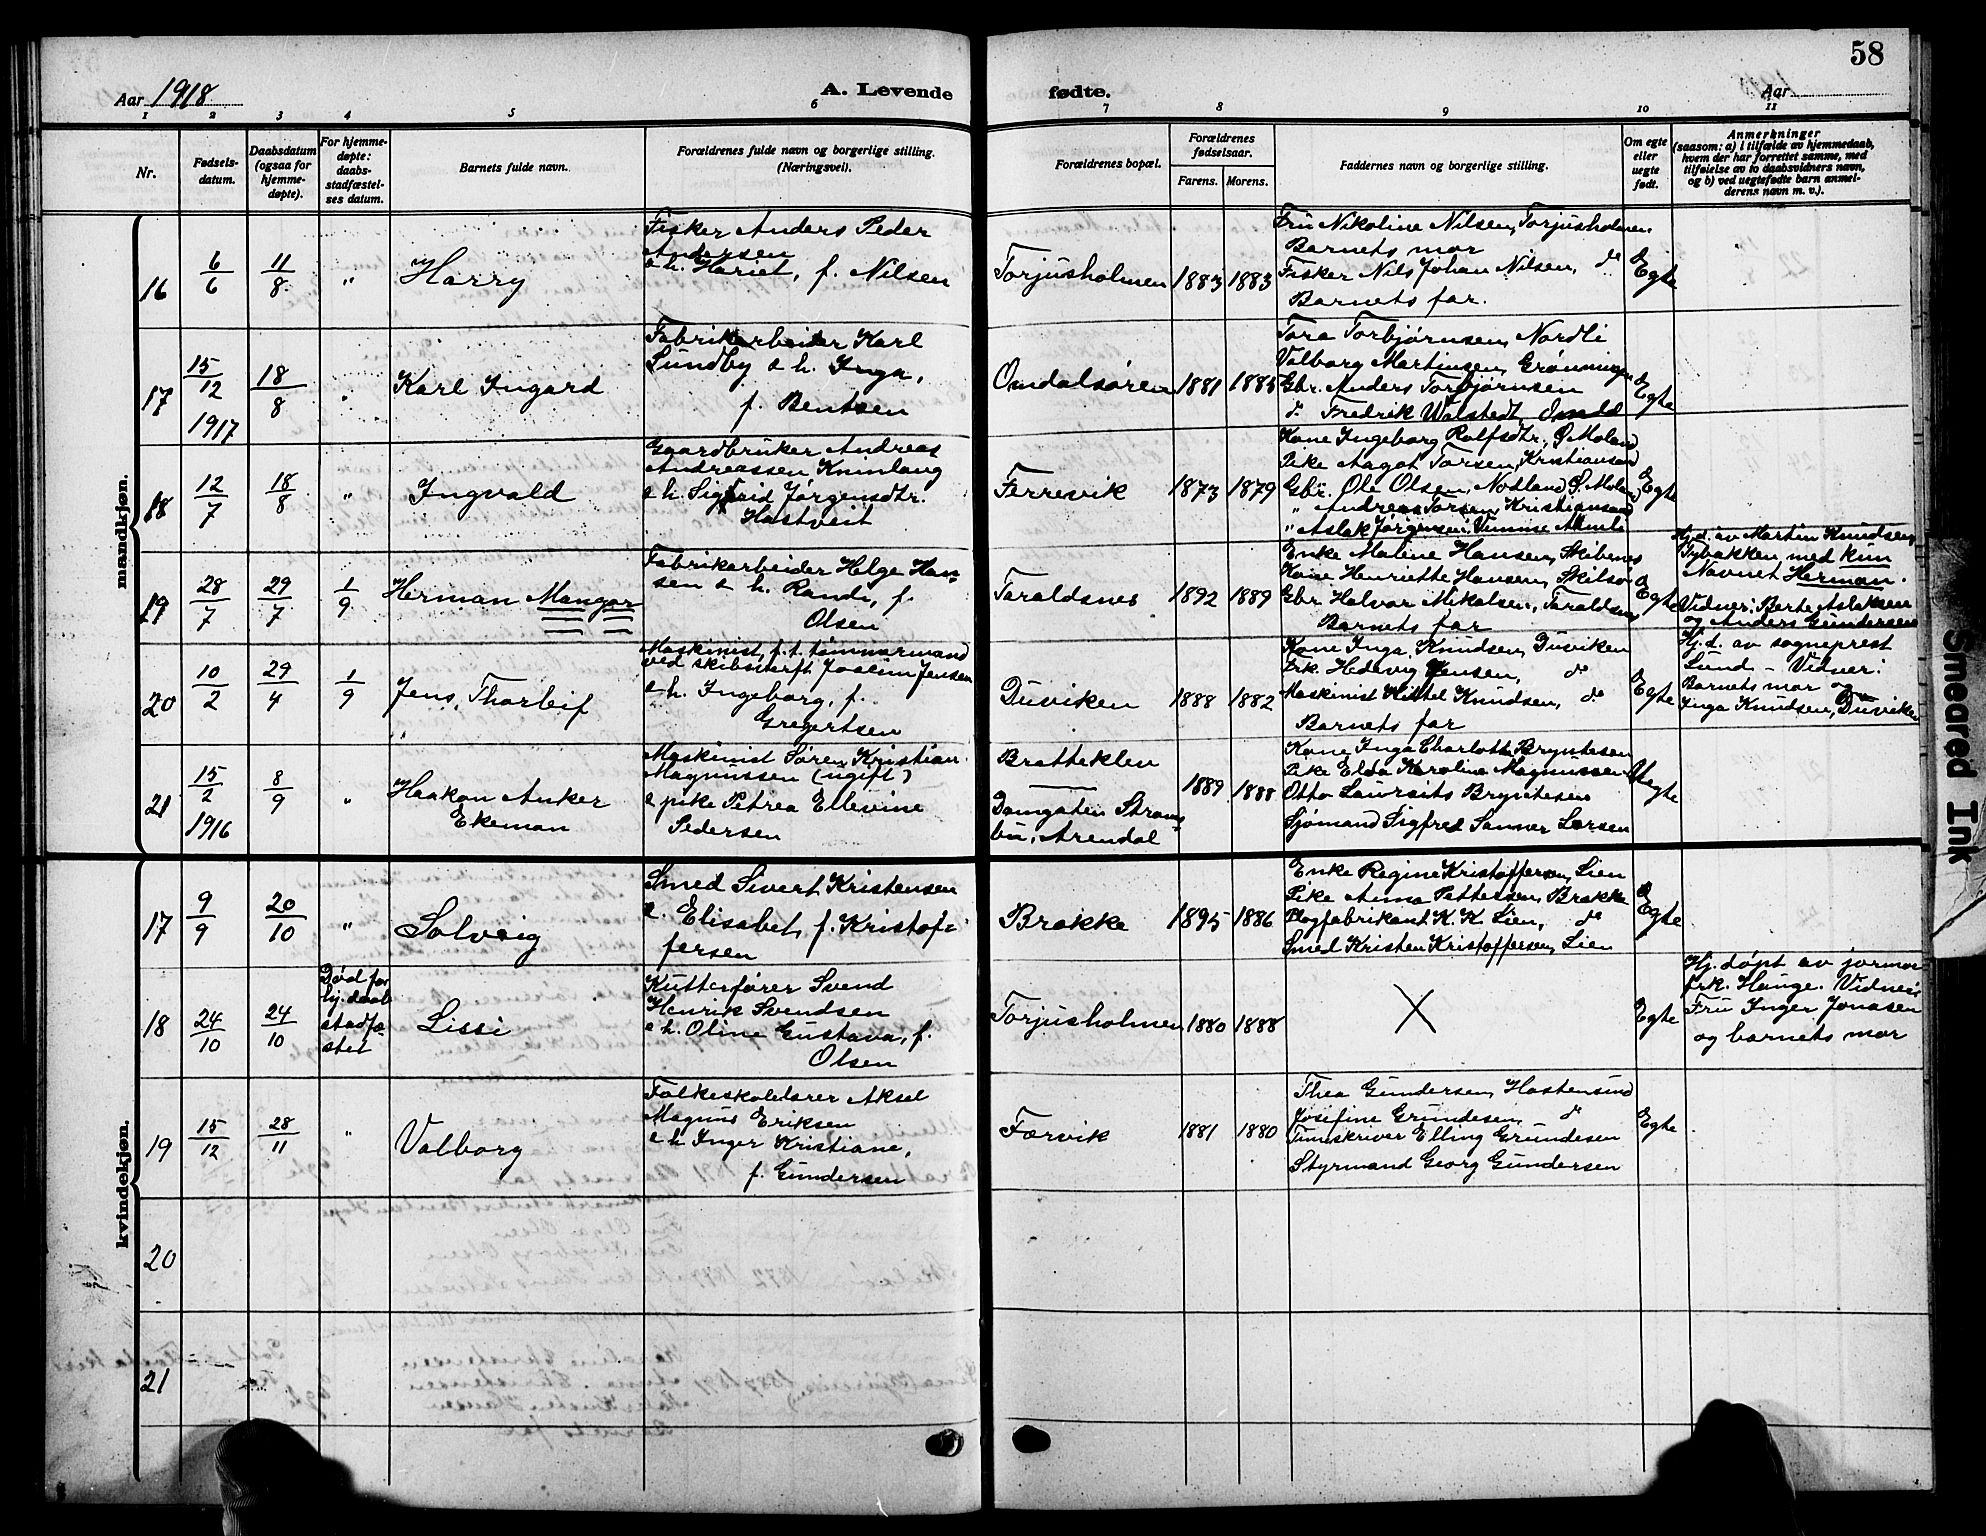 58
Aar 1918
A. Levende
fødte.
Aar
1 2 3 4 5 6 7 8 9 10 11
Nr.
Fødsels-
datum.
Daabsdatum
(ogsaa for
hjemme-
døpte).
For hjemme-
døpte:
daabs-
stadfæstel-
ses datum.
Barnets fulde navn.
Forældrenes fulde navn og borgerlige stilling.
(Næringsvei).
Forældrenes bopæl.
Forældrenes
fødselsaar.
Farens. Morens.
Faddernes navn og borgerlige stilling.
Om egte
eller
uegte
født.
Anmerkninger
(saasom: a) i tilfælde av hjemmedaab,
hvem der har forrettet samme, med
tilføielse av to daabsvidners navn,
og b) ved uegtefødte barn anmel-
derens navn m. v.).
mandkjøn.
16
6/6
11/8
"
Harry
Fisker Anders Peder
Andersen
& h. Hariet, f. Nilsen
Torjusholmen
1883 1883
Fru Nikoline Nilsen, Torjusholmen
Barnets mor
Fisker Nils Johan Nilsen, do
Barnets far.
Egte
17
15/12
1917
18/8
"
Karl Ingard
Fabrikarbeider Karl
Lundby & h. Inga,
f. Bentsen
Omdalsøren
1881 1885
Tora Torbjørnsen, Nordli
Valborg Martinsen, Grønningen
Gbr. Anders Torbjørnsen
do Fredrik Walstedt, Omdl
Egte
18
12/7
18/8
"
Ingvald
Gaardbruker Andreas
Andreassen Knimlang
& h. Sigfrid Jørgensdtr.
Hastveit
Ferrevik
1873 1879
Kone Ingeborg Rolfsdtr., Ø. Moland
Pike Aagot Torsen, Kristiansand
Gbr. Ole Olsen, Nodland Ø. Moland
" Andreas Torsen, Kristiansand
" Aslak Jørgensen, Vimme Aamli
Egte
19
28/7
29/7
1/9
Herman Mangor
Fabrikarbeider Helge Han-
sen & h. Randi, f.
Olsen
Taraldsnes
1892 1889
Enke Maline Hansen, Skibenes
Kone Henriette Hansen, Skilsø
Gbr Halvor Mikalsen, Taraldsnes
Barnets far
Egte
Hj.d. av Martin Knudsen,
Nybakken med kun
Navnet Herman.
Vidner: Berte Aslaksen
og Anders Gundersen
20
10/2
29/4
1/9
Jens, Thorleif
Maskinist, f. t. tømmermand
ved skibsverft Joakim Jensen
& h. Ingeborg, f.
Gregertsen
Duviken
1888 1882
Kone Inga Knudsen, Duviken
Frk. Hedevig Jensen, do
Maskinist Kittel Knudsen, do
Barnets far
Egte
Hj.d. av sogneprest
Lund - Vidner:
Barnets mor og
Inga Knudsen, Duviken
21
15/2
1916
8/9
"
Haakon Anker
Ekeman
Maskinist Søren Kristian
Magnussen (ugift)
& pike Petrea Ellevine
Pedersen
Bratteklev
Damgaten Strøms-
bu, Arendal
1889 1888
Kone Inga Charlotte Bryntesen
Pike Elda Karoline Magnussen
Otto Lauraits Bryntesen
Sjømand Sigfred Sanner Larsen
Uegte
kvindekjøn.
17
9/9
20/10
"
Solveig
Smed Sivert Kristensen
& Elisabet, f. Kristof-
fersen
Brakke
1895 1886
Enke Regine Kristoffersen, Lien
Pike Anna Pettersen, Brakke
Plogfabrikant K. K. Lien, do
Smed Kristen Kristoffersen, Lien
Egte
18
24/10
24/10
Død før
hj.daab
stadfæ-
stet
Lissi
Kutterfører Svend
Henrik Svendsen
& h. Oline Gustava, f.
Olsen
Torjusholmen
1880 1888
X
Egte
Hj.døpt av jormor
frk. Hauge. Vidner:
Fru Inger Jonasen
og barnets mor
19
15/12
28/11
"
Valborg
Folkeskolelærer Aksel
Magnus Eriksen
& h Inger Kristiane,
f. Gundersen
Færvik
1881 1880
Thea Gundersen, Hastensund
Josefine Grundesen do
Tunskriver Elling Grundesen
Styrmand Georg Gundersen
Egte
20
21
Smeared Ink